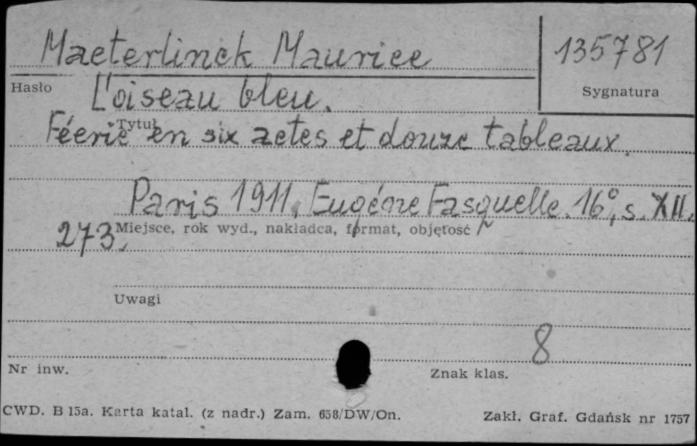 Maeterlinck Maurice
135781
Hasło
Sygnatura
L'oiseau bleu.
Tytuł
Féerie en six actes et douze tableaux.
Paris 1911, Eugéne Fasquelle. 16°, s. XII,
273.
Miejsce, rok wyd., nakładca, format, objętość
Uwagi
8
Nr inw.
Znak klas.
CWD. B 15a. Karta katal. (z nadr.) Zam. 658/DW/On.
Zakł. Graf. Gdańsk nr 1757